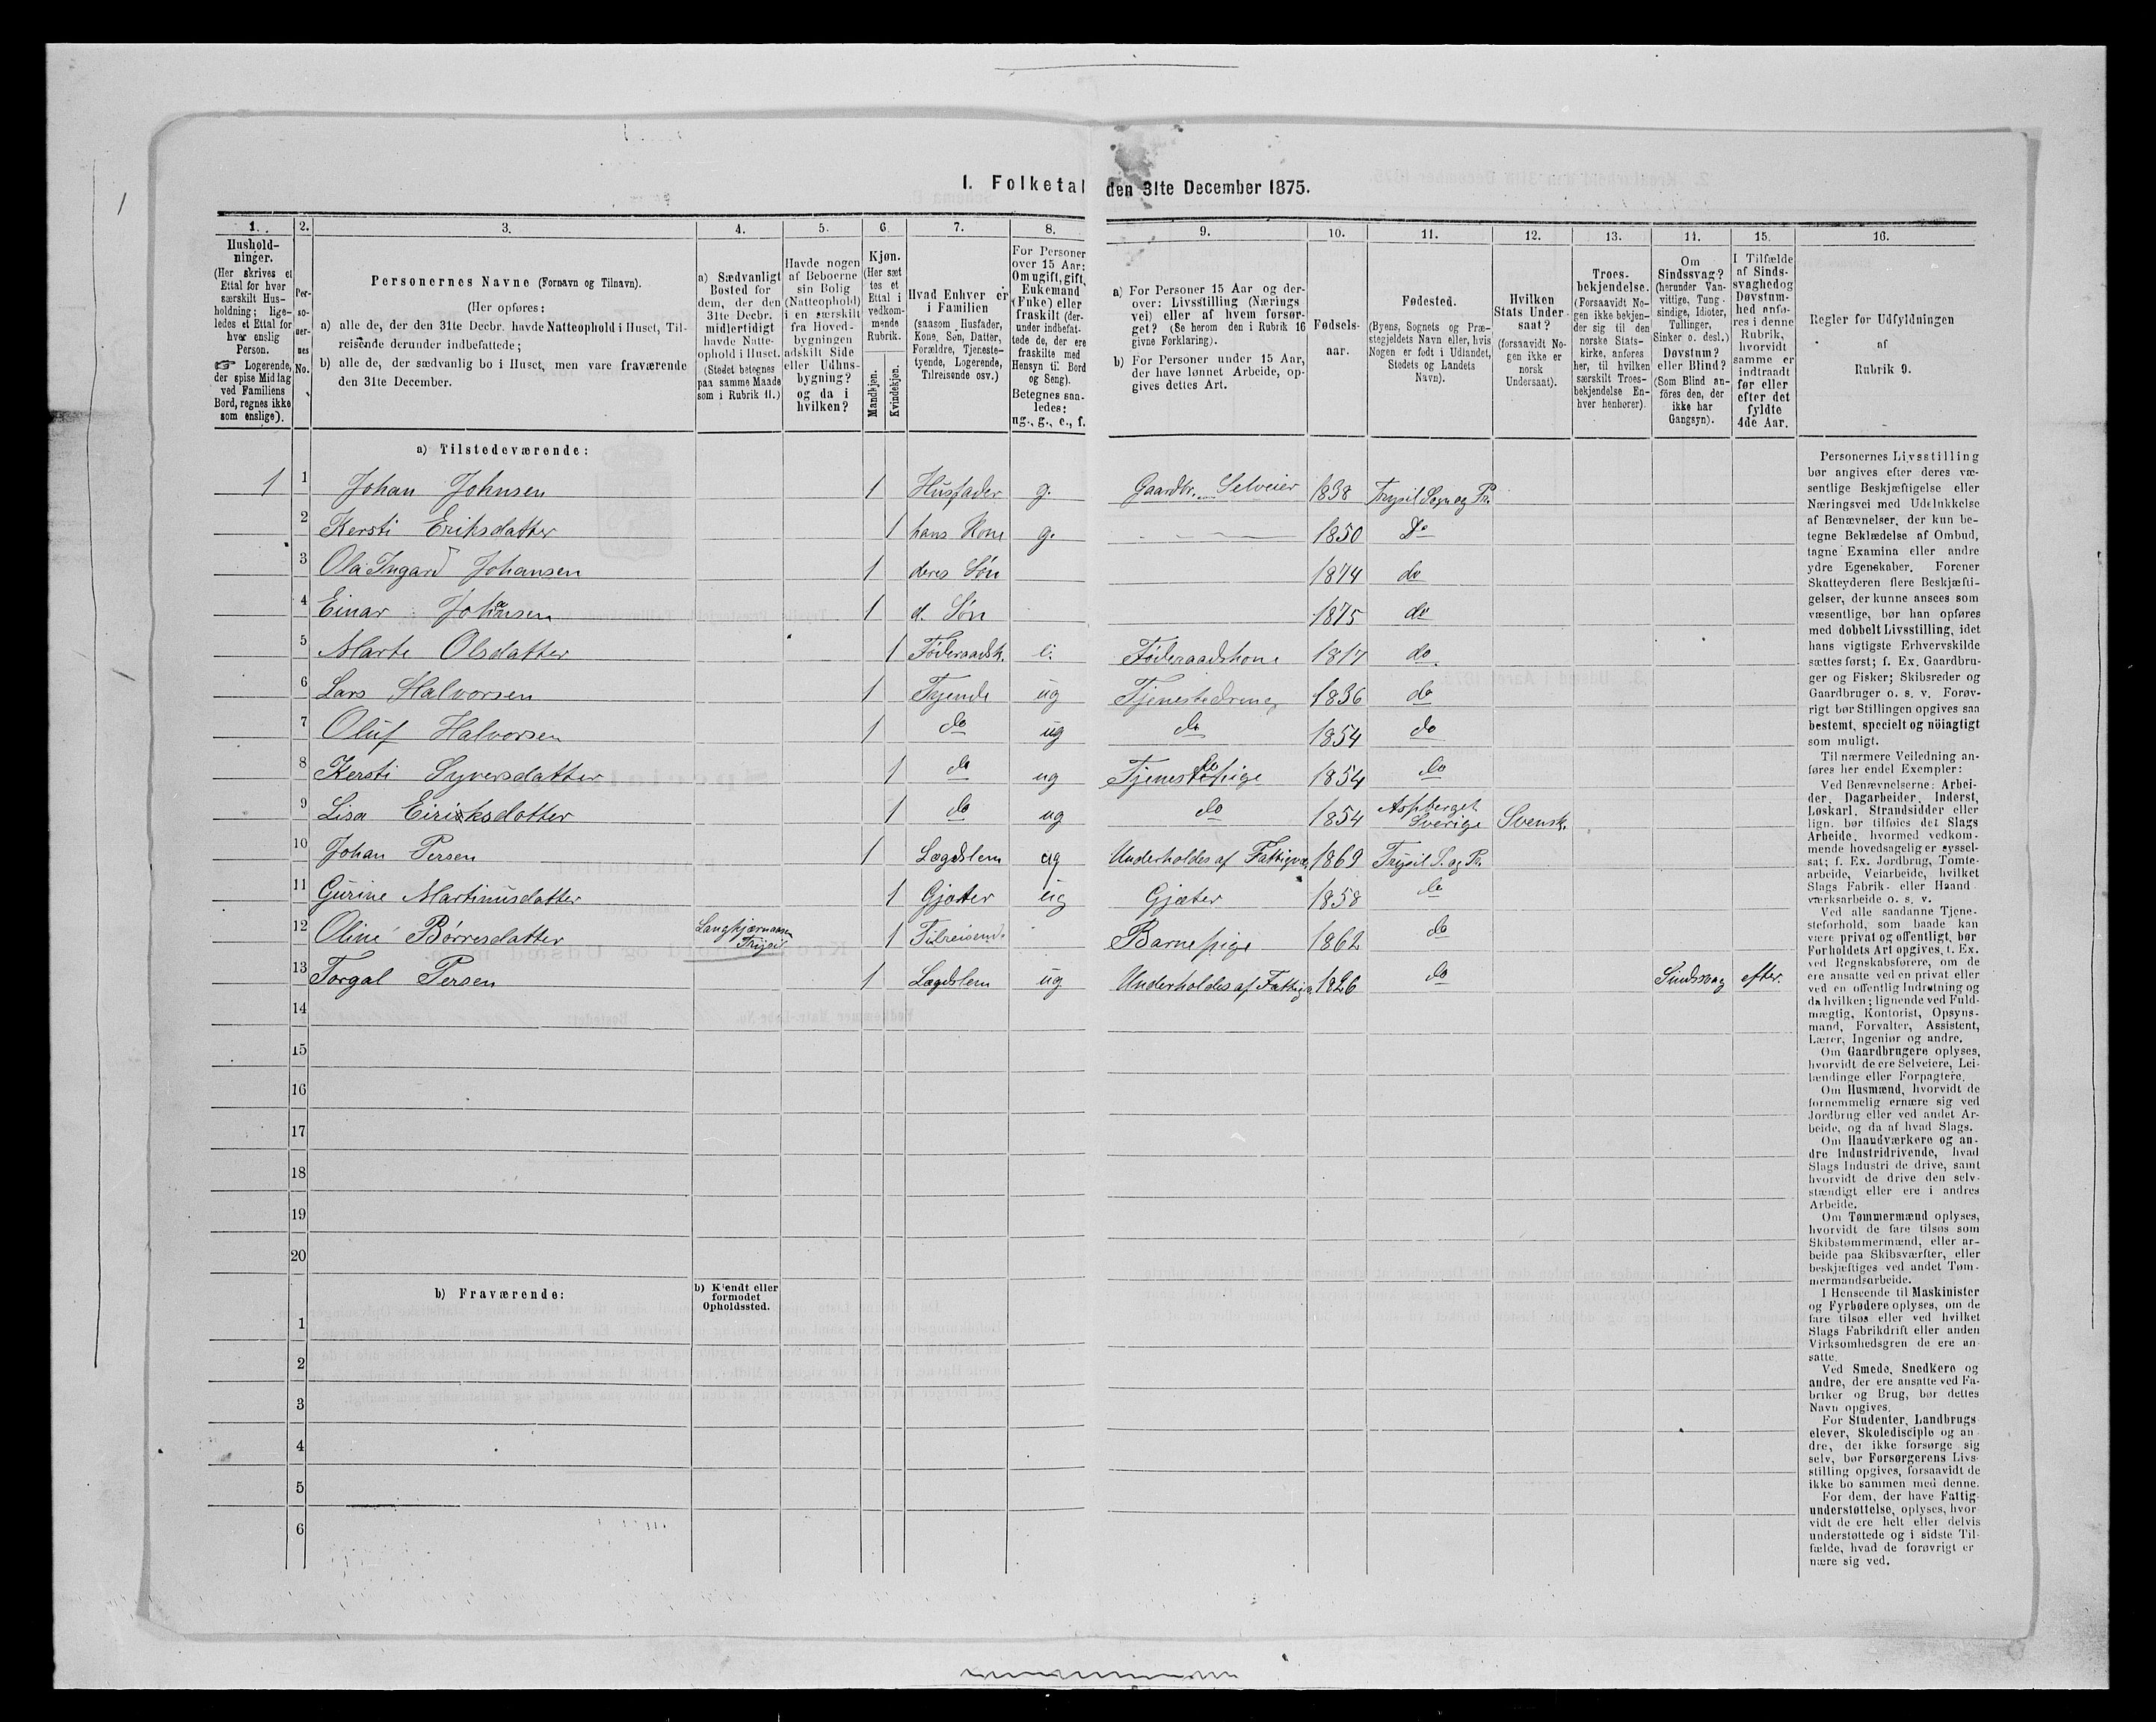 I. Folketal den 31te December 1875.
1. 2. 3. 4. 5. 6. 7. 8. 9. 10. 11. 12. 13. 14. 15. 16.
Hushold-
ninger.
(Her skrives et
Ettal for hver
særskilt Hus-
holdning; lige-
ledes et Ettal for
hver enslig
Person.
☞ Logerende,
der spise Middag
ved Familiens
Bord, regnes ikke
som enslige).
Per-
so-
ner-
nes
No.
Personernes Navne (Fornavn og Tilnavn).
(Her opføres:
a) alle de, der den 31te Decbr. havde Natteophold i Huset, Til-
reisende derunder indbefattede;
b) alle de, der sædvanlig bo i Huset, men vare fraværende
den 31te December.
a) Sædvanligt
Bosted for
dem, der den
31te Decbr.
midlertidigt
havde Natte-
ophold i Huset.
(Stedet betegnes
paa samme Maade
som i Rubrik 11.)
Havde nogen
af Beboerne
sin Bolig
(Natteophold)
i en særskilt
fra Hoved-
bygningen
adskilt Side
eller Udhus-
bygning?
og da i
hvilken?
Kjøn.
(Her sæt
tes et
Ettal i
vedkom-
mende
Rubrik.
Mandkjøn.
Kvindekjøn.
Hvad Enhver er
i Familien
(saasom Husfader,
Kone, Søn, Datter,
Forældre, Tjeneste-
tyende, Logerende,
Tilreisende osv.)
For Personer
over 15 Aar:
Om ugift, gift,
Enkemand
(Enke) eller
fraskilt (der-
under indbefat-
tede de, der ere
fraskilte med
Hensyn til Bord
og Seng).
Betegnes saa-
ledes:
ug., g., e., f.
a) For Personer 15 Aar og der-
over: Livsstilling (Nærings
vei) eller af hvem forsør-
get? (Se herom den i Rubrik 16
givne Forklaring).
b) For Personer under 15 Aar,
der have lønnet Arbeide, op-
gives dettes Art.
Fødsels-
aar.
Fødested.
(Byens, Sognets og Præ-
stegjeldets Navn eller, hvis
Nogen er født i Udlandet,
Stedets og Landets
Navn).
Hvilken
Stats Under
saat?
(forsaavidt No-
gen ikke er
norsk
Undersaat).
Troes-
bekjendelse.
(Forsaavidt No-
gen ikke bekjen-
der sig til den
norske Stats-
kirke, anføres
her, til hvilken
særskilt Troes-
bekjendelse En-
hver henhører).
Om
Sindssvag?
(herunder Van-
vittige, Tung-
sindige, Idioter,
Tullinger,
Sinker o. desl.)
Døvstum?
eller Blind?
(Som Blind an-
føres den, der
ikke har
Gangsyn).
I Tilfælde
af Sinds-
svaghed og
Døvstum-
hed anfø-
res i denne
Rubrik,
hvorvidt
samme er
indtraadt
før eller
efter det
fyldte
4de Aar.
Regler for Udfyldningen
af
Rubrik 9.
a) Tilstedeværende:
1 1 Johan Johnsen 1 Husfader g. Gaardbr. Selveier 1838 Trysil Sogn og Pr.
2 Kersti Eriksdatter 1 hans Kone g. 1850 Do
3 Ola Ingard Johansen 1 deres Søn 1874 do
4 Einar Johansen 1 d. Søn 1875 do
5 Marte Olsdatter 1 Føderaadsk. e. Føderaadskone 1817 do
6 Lars Halvorsen 1 Tyende ug Tjenestedreng 1836 do
7 Oluf Halvorsen 1 do ug do 1854 do
8 Kersti Syversdatter 1 do ug Tjenestepige 1854 do
9 Lisa Eiriksdatter 1 do ug do 1854 Aspberget Sverige Svensk.
10 Johan Persen 1 Lægdslem ug Underholdes af Fattigv. 1869 Trysil S. og Pr.
11 Gurine Martinusdatter 1 Gjæter ug Gjæter 1858 do
12 Oline Børresdatter Langkjærnaasen Trysil 1 Tilreisende Barnepige 1862 do
13 Torgal Persen 1 Lægdslem ug Underholdes af Fattigv. 1826 do Sindssvag efter.
14
15
16
17
18
19
20
b) Fraværende:
b) Kjendt eller
formodet
Opholdssted.
1
2
3
4
5
6
Personernes Livsstilling
bør angives efter deres væ-
sentlige Beskjæftigelse eller
Næringsvei med Udelukkelse
af Benævnelser, der kun be-
tegne Beklædelse af Ombud,
tagne Examina eller andre
ydre Egenskaber. Forener
Skatteyderen flere Beskjæfti-
gelser, der kunne ansees som
væsentlige, bør han opføres
med dobbelt Livsstilling, idet
hans vigtigste Erhvervskilde
sættes først; f. Ex. Gaardbru-
ger og Fisker; Skibsreder og
Gaardbruger o. s. v. Forøv-
rigt bør Stillingen opgives saa
bestemt, specielt og nöiagtigt
som muligt.
Til nærmere Veiledning an-
føres her endel Exempler:
Ved Benævnelserne: Arbei-
der, Dagarbeider, Inderst,
Løskarl, Strandsidder eller
lign. bør tilføies det Slags
Arbeide, hvormed vedkom-
mende hovedsagelig er syssel-
sat; f. Ex. Jordbrug, Tomte-
arbeide, Veiarbeide, hvilket
Slags Fabrik- eller Haand-
værksarbeide o. s. v.
Ved alle saadanne Tjene-
steforhold, som baade kan
være privat og offentligt, bør
Forholdets Art opgives, f. Ex.
ved Regnskabsførere, om de
ere ansatte ved en privat eller
ved en offentlig Indretning og
da hvilken; lignende ved Fuld-
mægtig, Kontorist, Opsyns-
mand, Forvalter, Assistent,
Lærer, Ingeniør og andre.
Om Gaardbrugere oplyses,
hvorvidt de ere Selveiere, Lei-
lændinge eller Forpagtere.
Om Husmænd, hvorvidt de
fornemmelig ernære sig ved
Jordbrug eller ved andet Ar-
beide, og da af hvad Slags.
Om Haandværkere og an-
dre Industridrivende, hvad
Slags Industri de drive, samt
hvorvidt de drive den selv-
stændigt eller ere i andres
Arbeide.
Om Tømmermænd oplyses,
hvorvidt de fare tilsøs som
Skibstømmermænd, eller ar-
beide paa Skibsværfter, eller
beskjæftiges ved andet Tøm-
mermandsarbeide.
I Henseende til Maskinister
og Fyrbødere oplyses, om de
fare tilsøs eller ved hvilket
Slags Fabrikdrift eller anden
Virksomhedsgren de ere an-
satte.
Ved Smede, Snedkere og
andre, der ere ansatte ved Fa-
briker og Brug, bør dettes
Navn opgives.
For Studenter, Landbrugs
elever, Skoledisciple og an
dre, der ikke forsørge sig
selv, bør Forsørgerens Livs-
stilling opgives, forsaavidt de
ikke bo sammen med denne.
For dem, der have Fattig
understøttelse, oplyses, hvor
vidt de ere helt eller delvis
understøttede og i sidste Til-
fælde, hvad de forøvrigt er
nære sig ved.